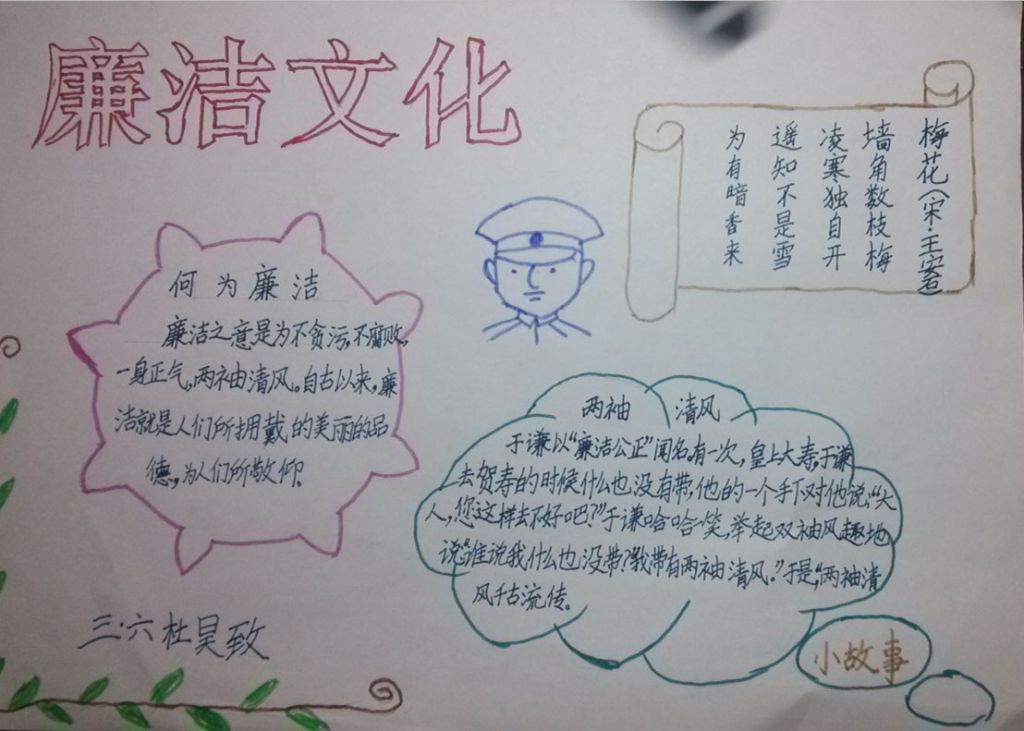 廉洁文化
梅花(宋·王安石)
墙角数枝梅
凌寒独自开
遥知不是雪
为有暗香来
何为廉洁
廉洁之意是为不贪污,不腐败,
一身正气,两袖清风。自古以来,廉
洁就是人们所拥戴的美丽的品
德,为人们所敬仰。
两袖 清风
于谦以“廉洁公正”闻名。有一次,皇上大寿,于谦
去贺寿的时候什么也没有带,他的一个手下对他说:“大
人,您这样去不好吧?”于谦哈哈一笑,举起双袖风趣地
说:“谁说我什么也没带?我带有两袖清风。”于是,“两袖清
风千古流传。
小故事
三·六杜昊致